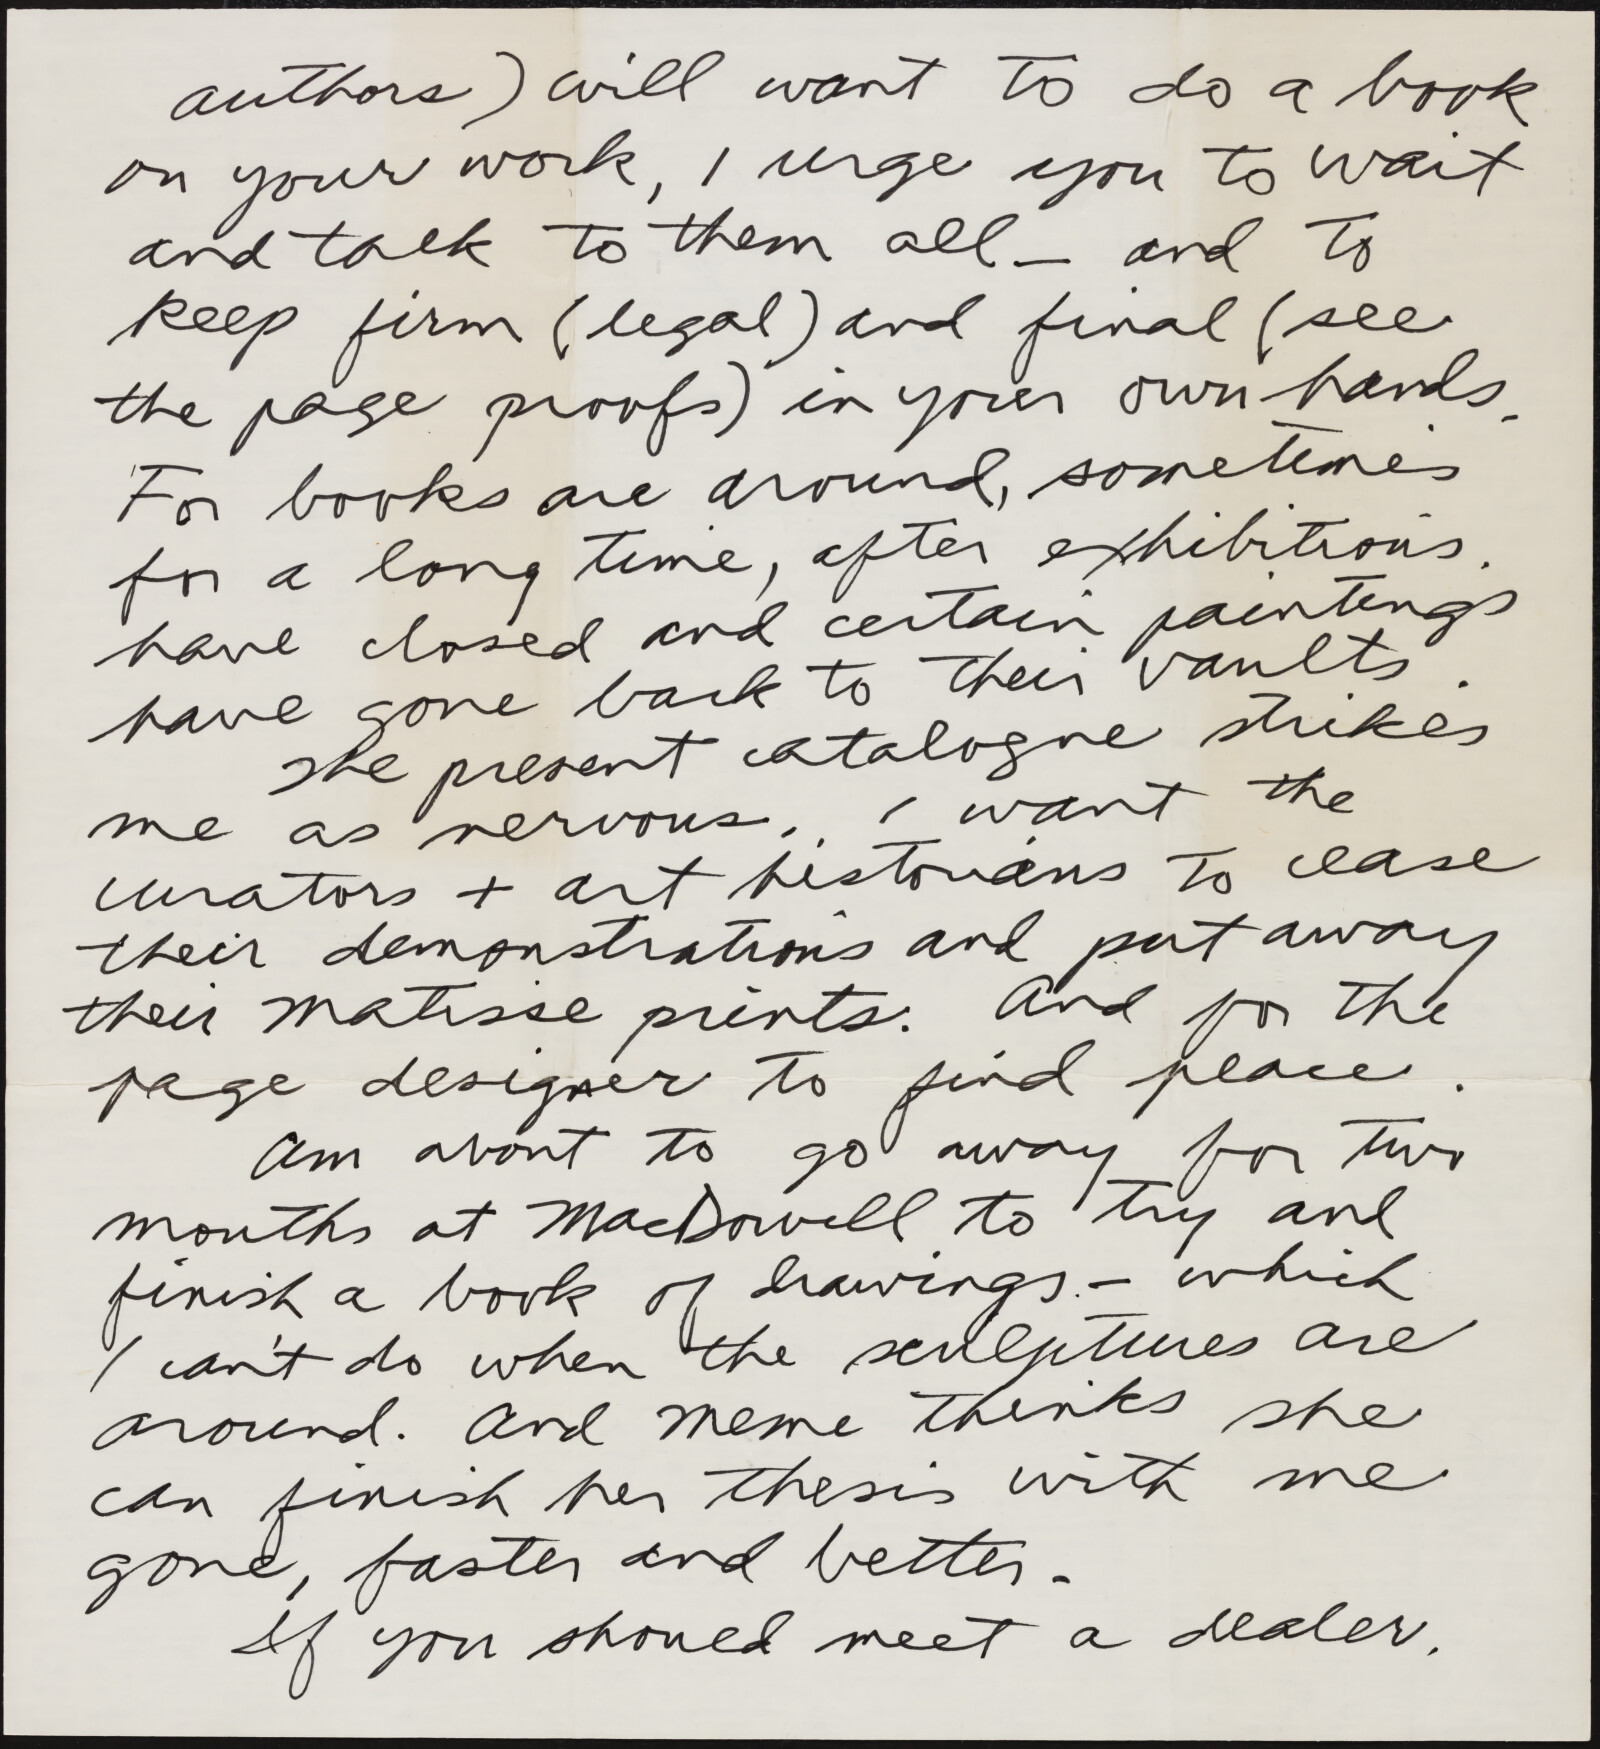 authors) will want to do a book
on your work, I urge you to wait
and talk to them all – and to
keep firm (legal) and final (see
the page proofs) in your own hands.
For books are around, sometimes
for a long time, after exhibitions
have closed and certain paintings
have gone back to their vaults.
The present catalogue strikes
me as nervous. I want the
curators + art historians to cease
their demonstrations and put away
their Matisse prints. And for the
page designer to find peace.
Am about to go away for two
months at MacDowell to try and
finish a book of drawings – which
I can't do when the sculptures are
around. And Meme thinks she
can finish her thesis with me
gone, faster and better.
If you should meet a dealer,